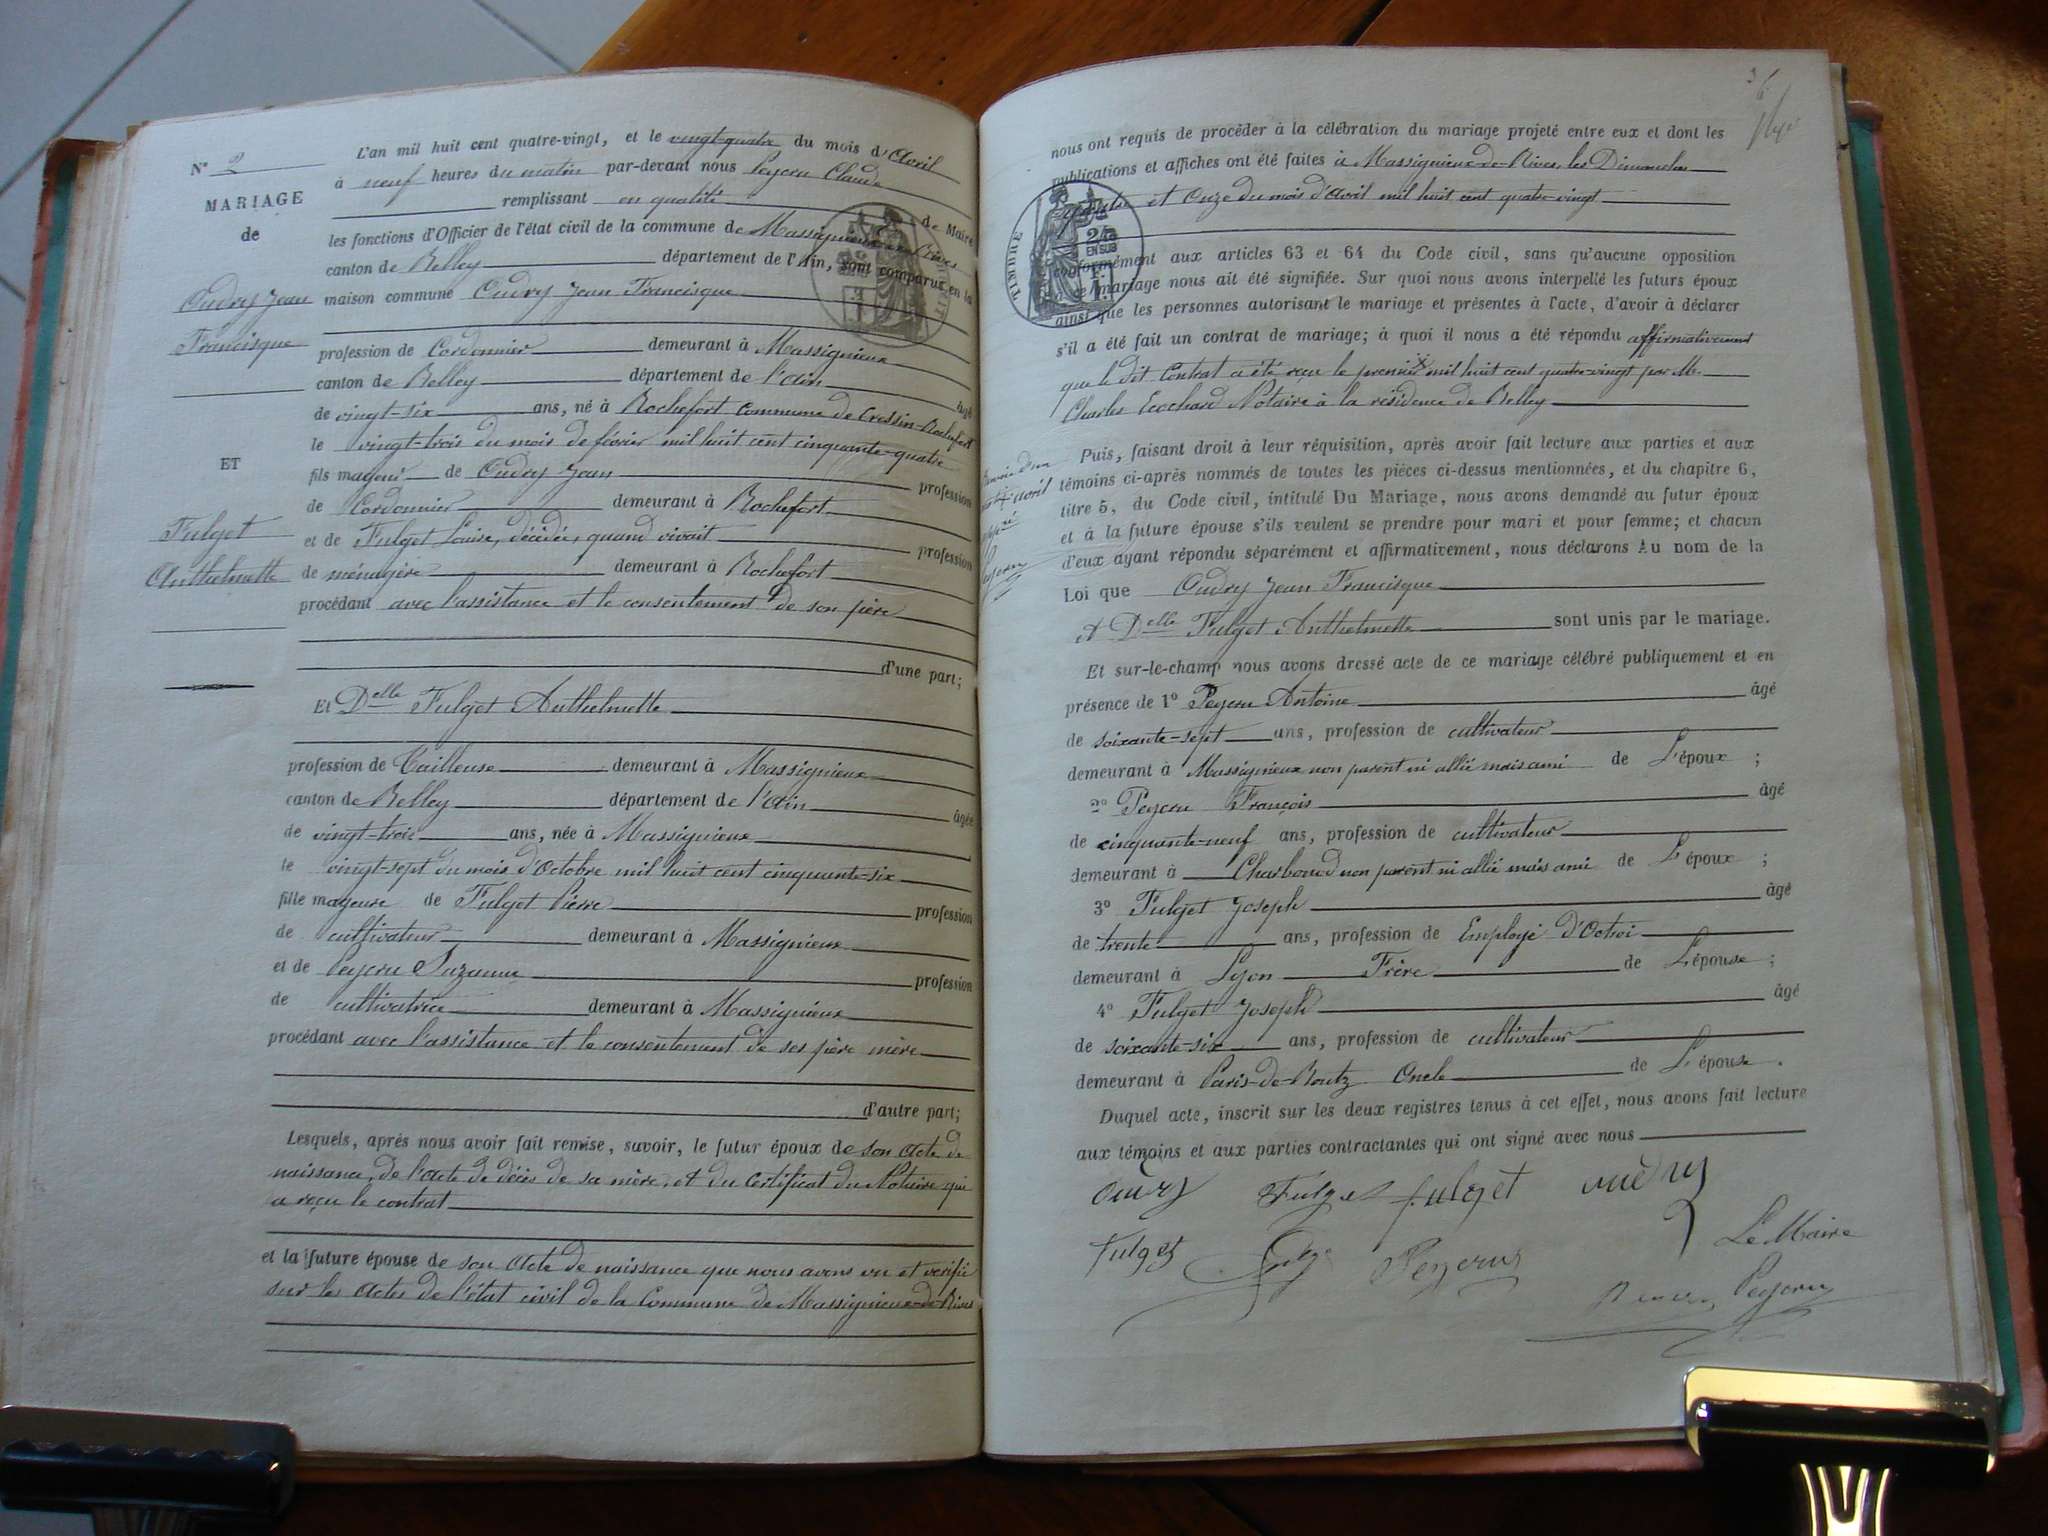 N° 2
MARIAGE
de
Oudry Jean
Francisque
ET
Fulget
Anthelmette
L'an mil huit cent quatre-vingt, et le vingt-quatre du mois d'Avril
à neuf heures du matin par-devant nous Peyern Claude
remplissant en qualité de Maire
les fonctions d'Officier de l'état civil de la commune de Massignieux de Rives
canton de Belley département de l'Ain, sont comparus en la
maison commune Oudry Jean Francisque
profession de Cordonnier demeurant à Massignieux
canton de Belley département de l'Ain âgé
de vingt-six ans, né à Rochefort Commune de Cressin-Rochefort
le vingt-trois du mois de février mil huit cent cinquante-quatre
fils majeur de Oudry Jean profession
de Cordonnier demeurant à Rochefort
et de Fulget Louise, décédée, quand vivait profession
de ménagère demeurant à Rochefort
procédant avec l'assistance et le consentement de son père
d'une part;
Et Delle Fulget Anthelmette
profession de Tailleuse demeurant à Massignieux
canton de Belley département de l'Ain âgée
de vingt-trois ans, née à Massignieux
le vingt-sept du mois d'Octobre mil huit cent cinquante-six
fille majeure de Fulget Pierre profession
de cultivateur demeurant à Massignieux
et de Peyern Suzanne profession
de cultivatrice demeurant à Massignieux
procédant avec l'assistance et le consentement de ses père mère
d'autre part;
Lesquels, après nous avoir fait remise, savoir, le futur époux de son Acte de
naissance, de l'acte de décès de sa mère, et du Certificat du Notaire qui
a reçu le contrat
et la future épouse de son Acte de naissance que nous avons vu et verifié
sur les Actes de l'état civil de la Commune de Massignieux-de-Rives
nous ont requis de procéder à la célébration du mariage projeté entre eux et dont les
publications et affiches ont été faites à Massignieux-de-Rives, les Dimanches
quatre et Onze du mois d'Avril mil huit cent quatre-vingt
TIMBRE
25
EN SUS
conformément aux articles 63 et 64 du Code civil, sans qu'aucune opposition
à ce mariage nous ait été signifiée. Sur quoi nous avons interpellé les futurs époux
ainsi que les personnes autorisant le mariage et présentes à l'acte, d'avoir à déclarer
s'il a été fait un contrat de mariage; à quoi il nous a été répondu affirmativement
que le dit Contrat a été reçu le premier mil huit cent quatre-vingt par Me
Charles Ecochard Notaire à la résidence de Belley
Puis, faisant droit à leur réquisition, après avoir fait lecture aux parties et aux
témoins ci-après nommés de toutes les pièces ci-dessus mentionnées, et du chapitre 6,
titre 5, du Code civil, intitulé Du Mariage, nous avons demandé au futur époux
et à la future épouse s'ils veulent se prendre pour mari et pour femme; et chacun
d'eux ayant répondu séparément et affirmativement, nous déclarons Au nom de la
Loi que Oudry Jean Francisque
et Delle Fulget Anthelmette sont unis par le mariage.
avril
Et sur-le-champ nous avons dressé acte de ce mariage célébré publiquement et en
présence de 1° Peyern Antoine âgé
de soixante-sept ans, profession de cultivateur
demeurant à Massignieux non parent ni allié mais ami de L'époux ;
2° Peyern François âgé
de cinquante-neuf ans, profession de cultivateur
demeurant à Charboud non parent ni allié mais ami de L'époux ;
3° Fulget Joseph âgé
de trente ans, profession de Employé d'Octroi
demeurant à Lyon Frère de L'épouse ;
4° Fulget Joseph âgé
de soixante-six ans, profession de cultivateur
demeurant à Paris-de-Routz Oncle de L'épouse .
Duquel acte, inscrit sur les deux registres tenus à cet effet, nous avons fait lecture
aux témoins et aux parties contractantes qui ont signé avec nous
Oudry Fulget fulget oudry
Fulget Peyern
Le Maire
Peyern